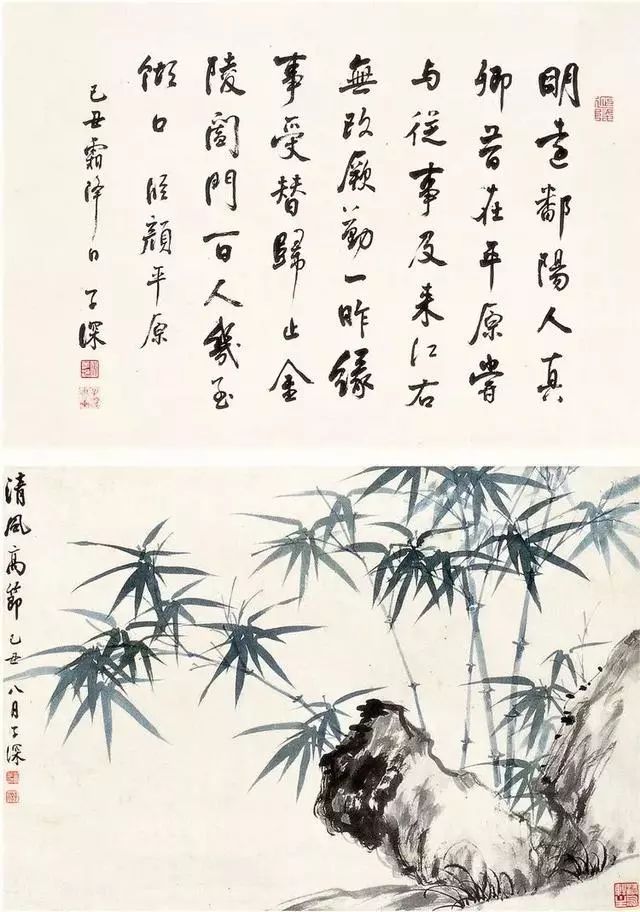 明遠鄱陽人真
卿昔在平原嘗
与從事及来江右
無改厥勤一昨緣
事受替歸止金
陵闔門百人幾至
餬口 臨顏平原
己丑霜降日 子深
清風高節 己丑八月子深